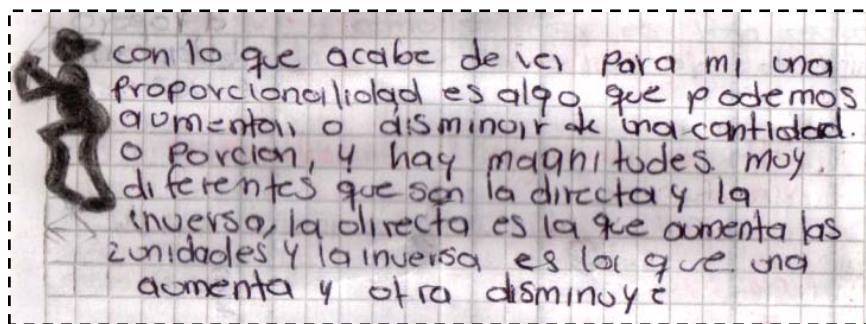 con lo que acabe de ver para mi una
proporcionalidad es algo que podemos
aumentar o disminuir de una cantidad.
o porcion, y hay magnitudes muy.
diferentes que son la directa y la
inversa, la directa es la que aumenta las
2 unidades y la inversa es la que una
aumenta y otra disminuye